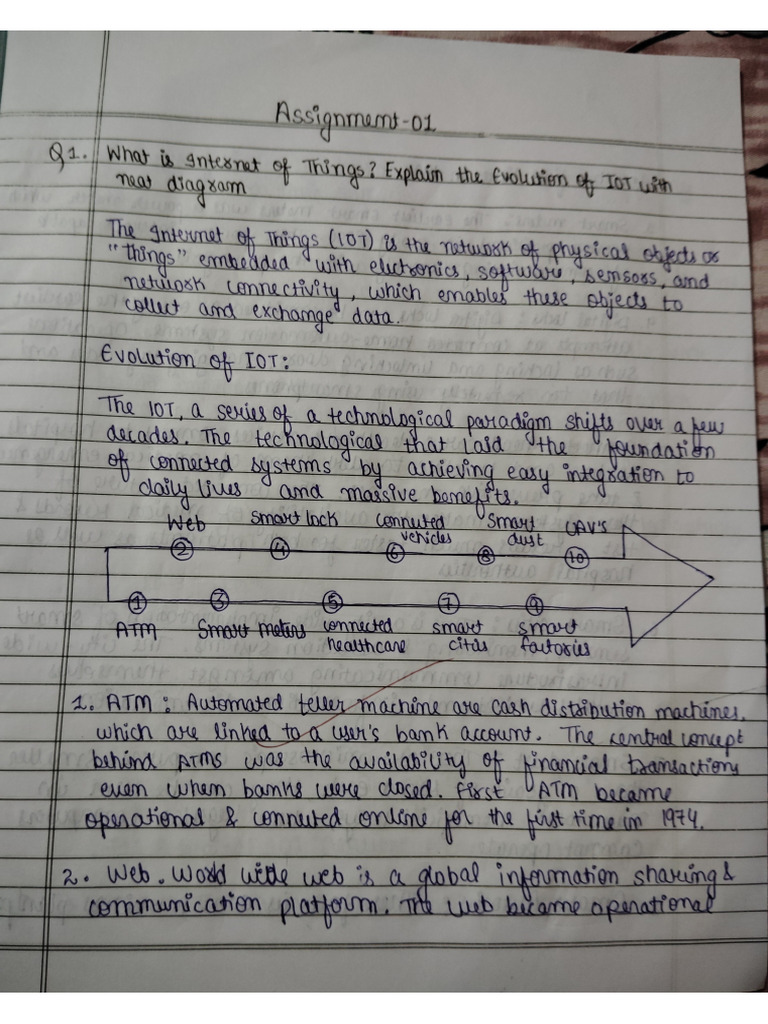 Assignment-01
Q1. What is Internet of Things? Explain the Evolution of IOT with
neat diagram
The Internet of Things (IOT) is the network of physical objects or
"things" embedded with electronics, software, sensors, and
network connectivity, which enables these objects to
collect and exchange data.
Evolution of IOT:
The IOT, a series of a technological paradigm shifts over a few
decades. The technological that laid the foundation
of connected systems by achieving easy integration to
daily lives and massive benefits.
Web smart lock connected vehicles smart dust UAV'S
2 4 6 8 10
1 3 5 7 9
ATM Smart meters connected healthcare smart cities smart factories
1. ATM : Automated teller machine are cash distribution machines,
which are linked to a user's bank account. The central concept
behind ATMS was the availability of financial transactions
even when banks were closed. first ATM became
operational & connected online for the first time in 1974.
2. Web. World wide web is a global information sharing &
communication platform. The web became operational